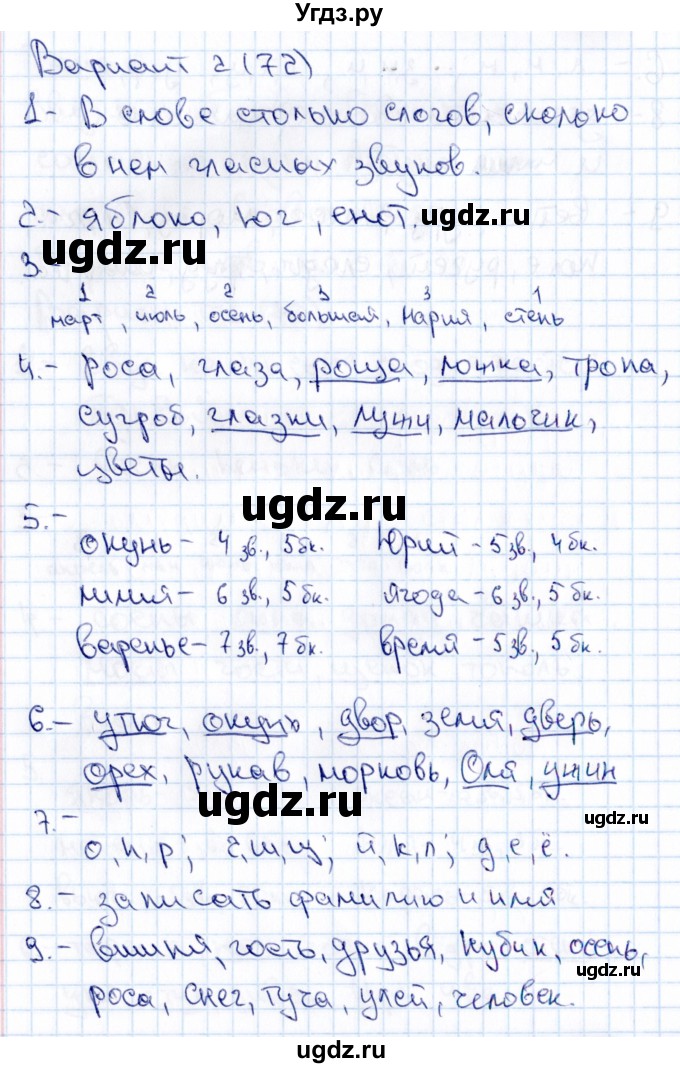 Угдз.ру
Вариант 2 (72)
1- В слове столько слогов, сколько
в нем гласных звуков.
2.- яблоко, юг, енот.
ugdz.ru
ugdz.ru
3.-
1 2 2 3 3 1
март, июль, осень, большая, Мария, степь
4.- роса, глаза, роща, ложка, тропа,
сугроб, глазки, лужи, мальчик,
цветы.
ugdz.ru
5.-
окунь- 4 зв., 5 бк. Юрий - 5 зв., 4 бк.
линия- 6 зв., 5 бк. ягода - 6 зв., 5 бк.
варенье- 7 зв., 7 бк. время - 5 зв., 5 бк.
6.- утюг, окунь, двор, земля, дверь,
орех, рукав, морковь, Оля, ужин
ugdz.ru
ugdz.ru
7.-
о, п, р; ч, ш, щ; й, к, л; д, е, ё.
8.- записать фамилию и имя
9.- вишня, гость, друзья, кубик, осень,
ugdz.ru
роса, снег, туча, улей, человек.
ugdz.ru